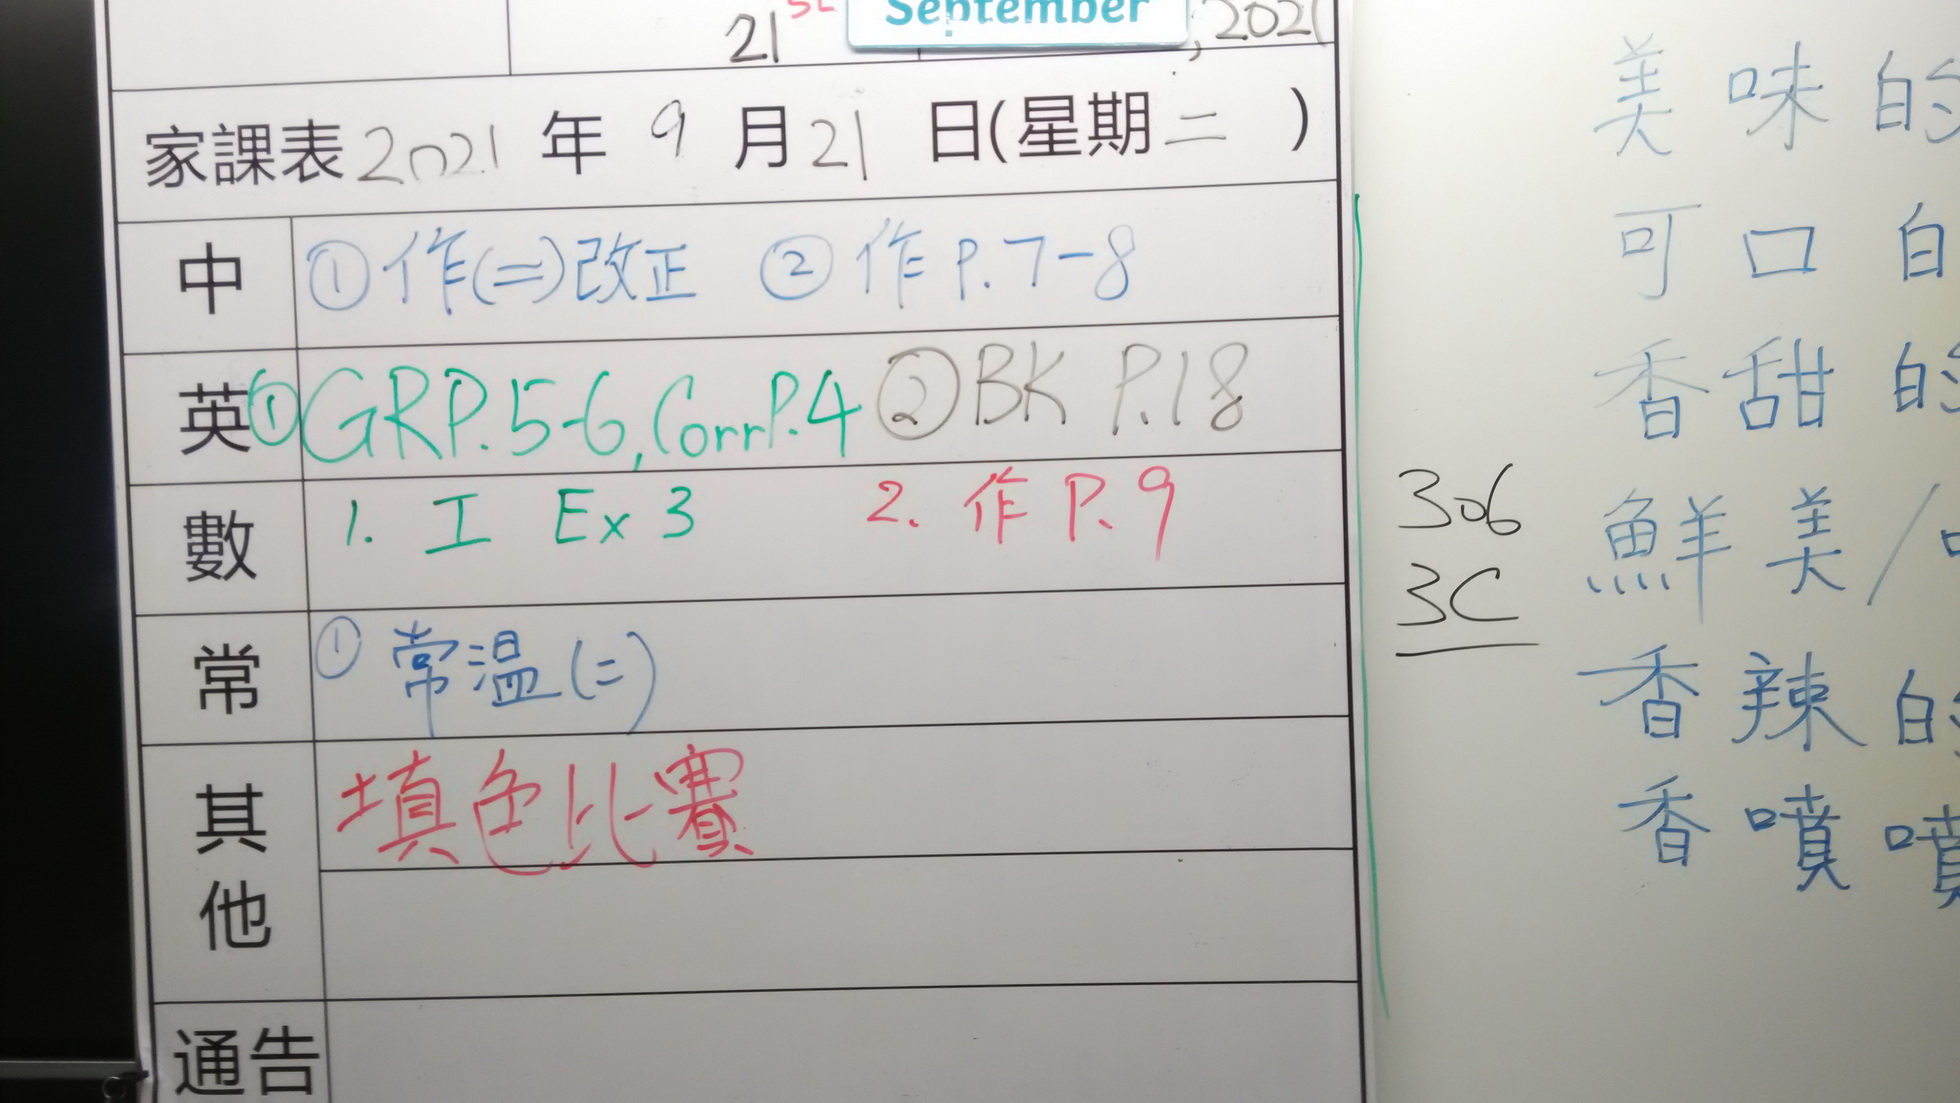 21st September, 2021
家課表 2021 年 9 月 21 日(星期二 )
中 ①作(二)改正 ②作 P.7-8
英 ①GRP.5-6, Corr P.4 ②BK P.18
數 1. 工 Ex 3 2. 作 P.9
常 ①常温(二)
其他 填色比賽
通告
306
3C
美味的
可口
香甜的
鮮美/
香辣的
香噴噴